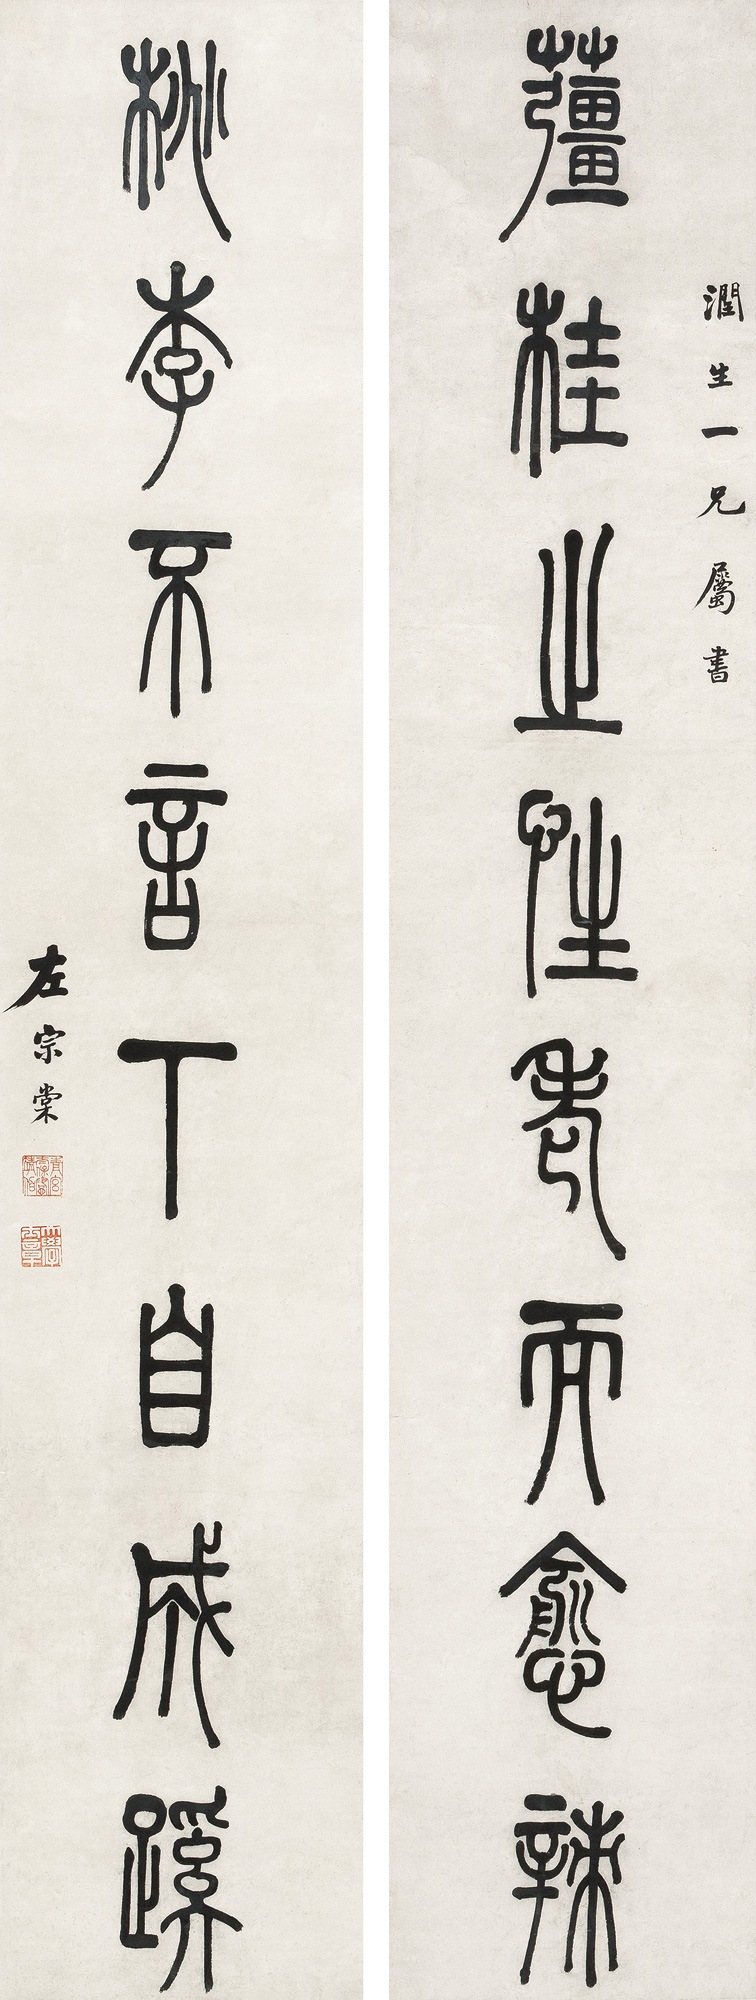 潤生一兄屬書
薑桂之性老而愈辣
桃李不言下自成蹊
左宗棠